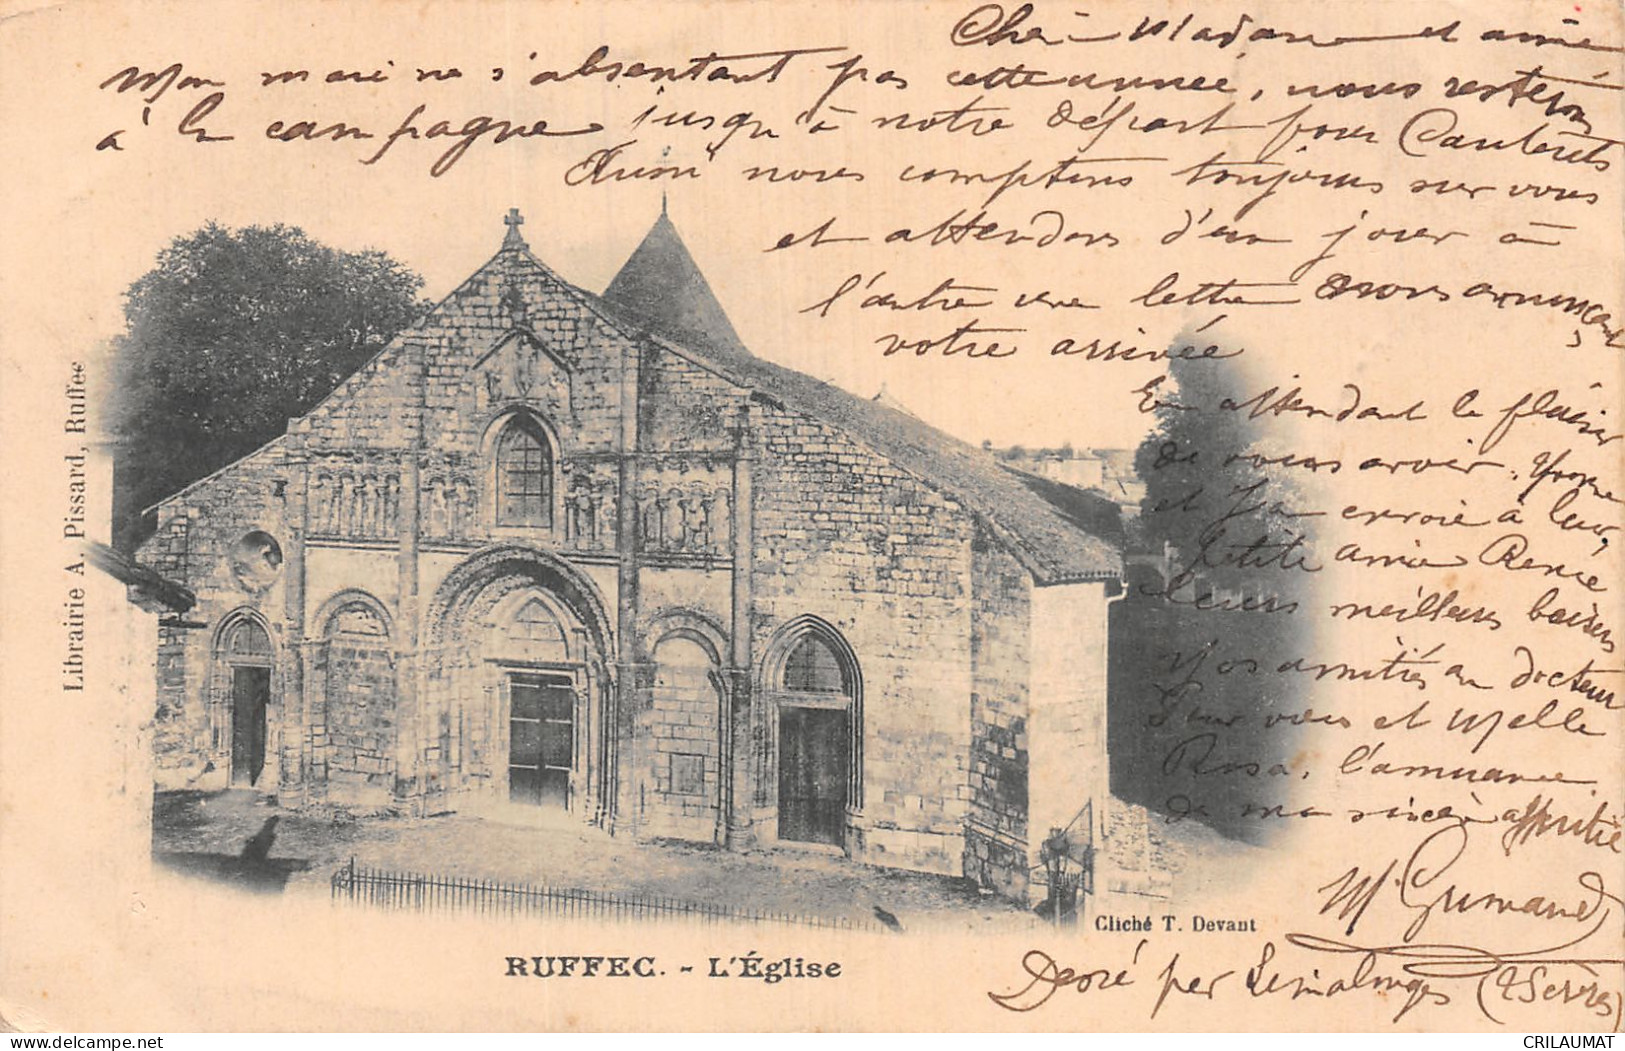 Chère Madame et amie
Mon mari ne s'absentant pas cette année, nous resterons
à la campagne jusqu'à notre départ pour Cauterets
Aussi nous comptons toujours sur vous
et attendons d'un jour à
l'autre une lettre nous annonçant
votre arrivée
En attendant le plaisir
de vous avoir, Yvonne
et envoie à leur
petite amie Renée
leurs meilleurs baisers
Vos amitiés au docteur
Pour vous et Melle
Rosa, l'assurance
de ma sincère
M. Grimaud
Librairie A. Pissard, Ruffec
Cliché T. Devant
RUFFEC. - L'Église
Desié per Limalonges (2 Sèvres)
CRILAUMAT